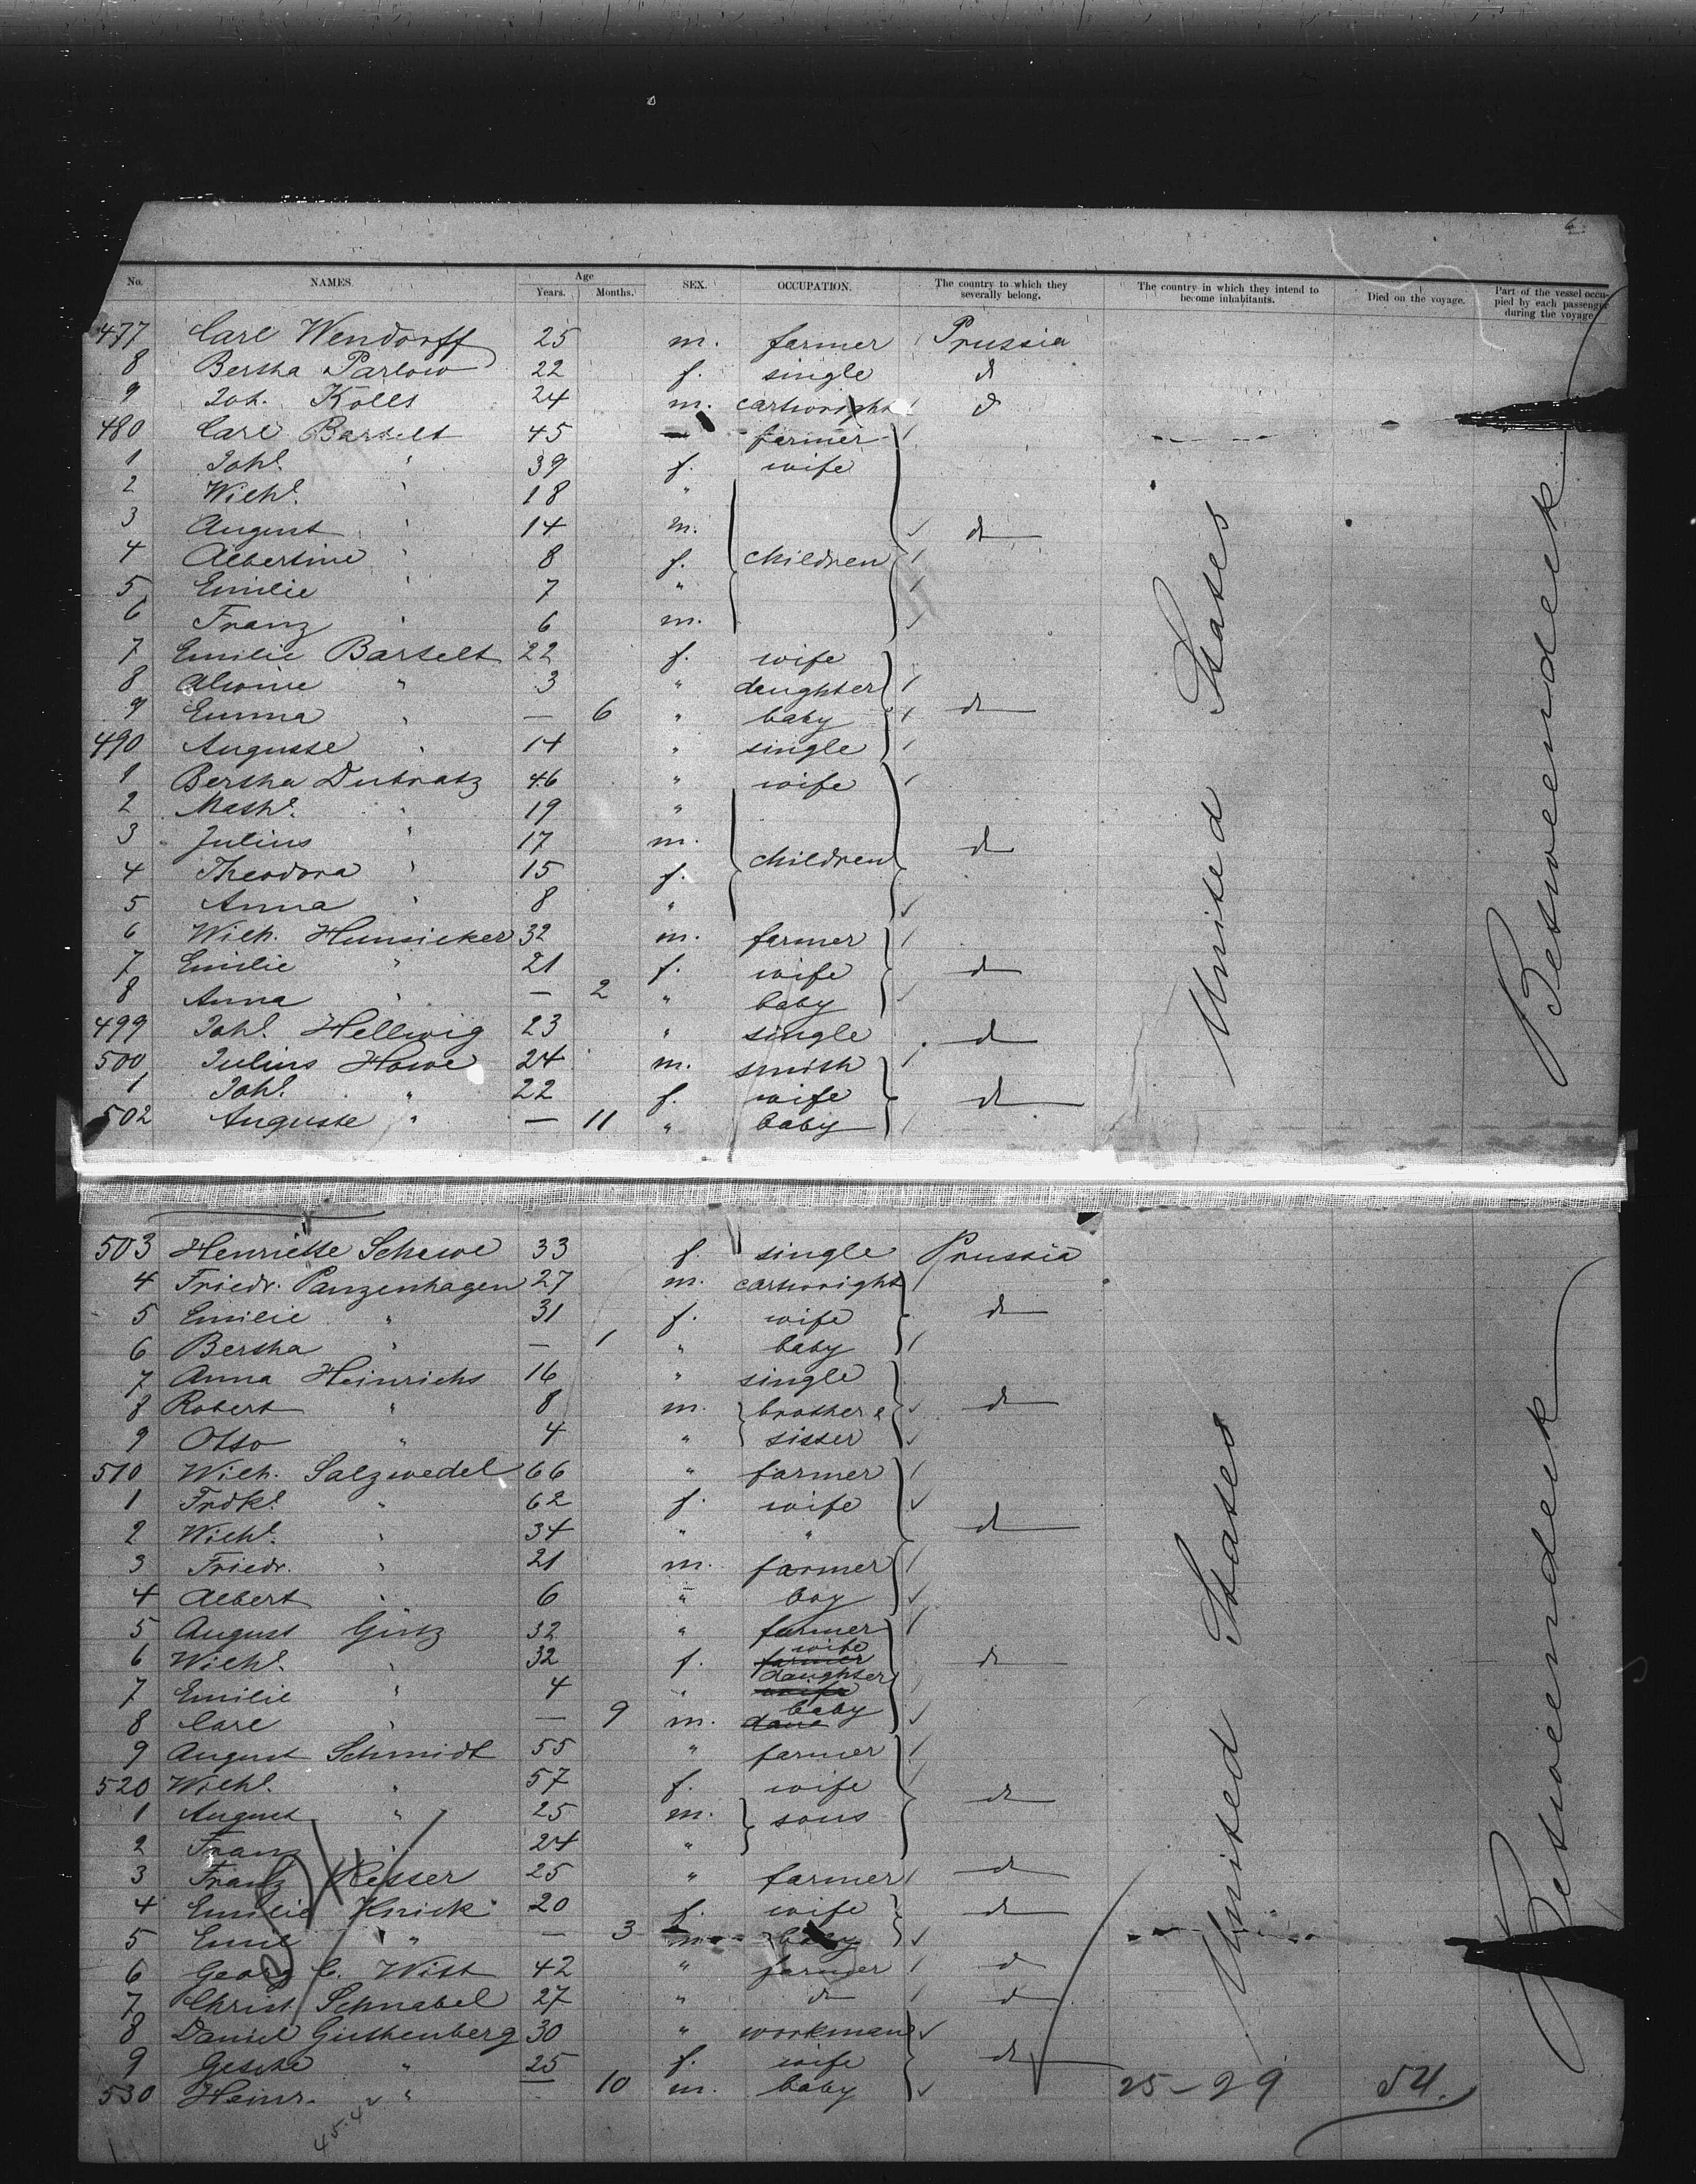 6
No. NAMES. Age Years. Months. SEX. OCCUPATION. The country to which they severally belong. The country in which they intend to become inhabitants. Died on the voyage. Part of the vessel occupied by each passenger during the voyage.
477 Carl Wendorff 25 m. farmer Prussia
8 Bertha Parlow 22 f. single do
9 Joh. Kolls 24 m. cartwright do
480 Carl Bartelt 45 farmer
1 Johe. " 39 f. wife
2 Wilhe. " 18 "
3 August " 14 m. do
4 Albertine " 8 f. children
5 Emilie " 7 "
6 Franz " 6 m.
7 Emilie Bartelt 22 f. wife
8 Alwine " 3 " daughter
9 Emma " — 6 " baby do
490 Auguste " 14 " single
1 Bertha Dubratz 46 " wife
2 Mathe. " 19 "
3 Julius " 17 m. do
4 Theodora " 15 f. children
5 Anna " 8 "
6 Wilh. Hunsicker 32 m. farmer
7 Emilie " 21 f. wife do
8 Anna " — 2 " baby
499 Johe. Hellwig 23 " single do
500 Julius Howe 24 m. smith
1 Johe. " 22 f. wife do
502 Auguste " — 11 " baby
United States
Betweendeck
503 Henriette Schewe 33 f. single Prussia
4 Friedr. Panzenhagen 27 m. cartwright
5 Emilie " 31 f. wife do
6 Bertha " — 1 " baby
7 Anna Heinrichs 16 " single
8 Robert " 8 m. brother & do
9 Otto " 4 " sister
510 Wilh. Salzwedel 66 " farmer
1 Frdke. " 62 f. wife
2 Wilhe. " 34 " " do
3 Friedr. " 21 m. farmer
4 Albert " 6 " boy
5 August Ginz 32 " farmer
6 Wilhe. " 32 f. farmer wife do
7 Emilie " 4 " wife daughter
8 Carl " — 9 m. baby
9 August Schmidt 55 " farmer
520 Wilhe. " 57 f. wife
1 August " 25 m. sons do
2 Franz " 24 "
3 Franz Hesser 25 " farmer do
4 Emilie Knick 20 f. wife do
5 Emil " — 3 m. baby
6 Georg C. Witt 42 " farmer do
7 Christ. Schnabel 27 " do do
8 Daniel Guthenberg 30 " workman
9 Gesche " 25 f. wife do
530 Heinr. " — 10 m. baby
United States
Betweendeck
25–29 54.
45.42